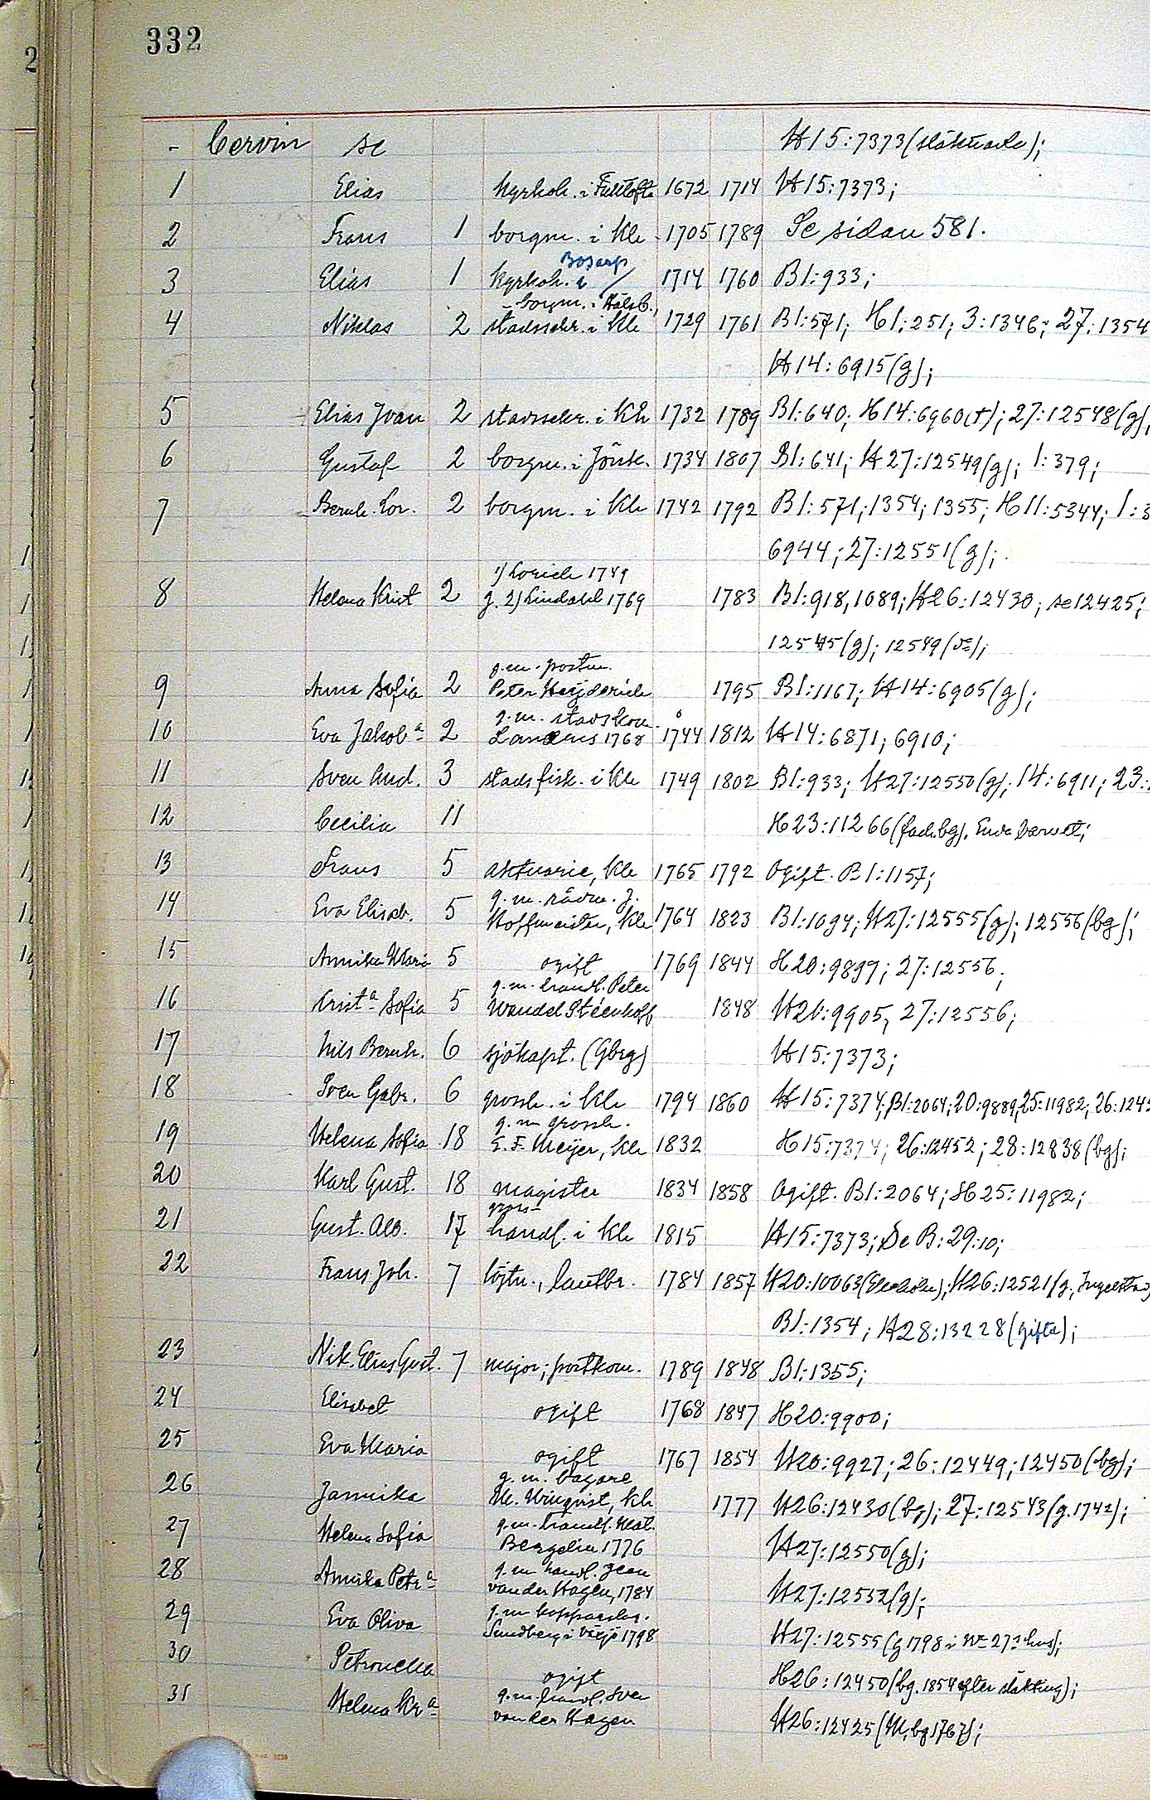 332
2
- Cervin se H15:7373 (släkttavla);
1 Elias kyrkoh. i Fulltofta 1672 1714 H15:7373;
2 Frans 1 borgm. i Khn 1705 1789 Se sidan 581.
Bosarp
3 Elias 1 kyrkoh. i 1714 1760 B1:933;
- borgm. i Hälsb.
4 Niklas 2 stadssekr. i Khn 1729 1761 B1:571; H1:251; 3:1346; 27:1354
H14:6915(g);
5 Elias Ivan 2 stadssekr. i Khn 1732 1789 B1:640; H14:6960(t); 27:12548(g),
6 Gustaf 2 borgm. i Jönk. 1734 1807 B1:641; H27:12549(g); 1:379;
7 Bernh. Lor. 2 borgm. i Khn 1742 1792 B1:571; 1354; 1355; H11:5344; 1:3
6944; 27:12551(g);
1) Lorich 1749
8 Helena Krist 2 g. 2) Lindahl 1769 1783 B1:918, 1089; H26:12430; se 12425;
12545(g); 12549
g.m. postm.
9 Anna Sofia 2 Peter Heijderich 1795 B1:1167; H14:6905(g);
g.m. stadskom.
10 Eva Jakoba 2 1768 1744 1812 H14:6871; 6910;
11 Sven And. 3 stadsfisk. i Khn 1749 1802 B1:933; H27:12550(g); 14:6911; 23:
12 Cecilia 11 H23:11266 (fad. bg). Enda barnet;
13 Frans 5 aktuarie, Khn 1765 1792 Ogift. B1:1157;
g.m. rådm. J.
14 Eva Elisab. 5 Hoffmeister, Khn 1764 1823 B1:1094; H27:12555(g); 12556(bg);
15 Annika Maria 5 ogift 1769 1844 H20:9897; 27:12556;
g.m. handl. Peter
16 Krista Sofia 5 Wendel Stéenhoff 1848 H20:9905, 27:12556;
17 Nils Bernh. 6 sjökapt. (Gbrg) H15:7373;
18 Sven Gabr. 6 grossh. i Khn 1794 1860 H15:7374; B1:2064; 20:9889; 25:11982; 26:1245
g.m. grossh.
19 Helena Sofia 18 E. F. Meijer, Khn 1832 H15:7374; 26:12452; 28:12838(bg);
20 Karl Gust. 18 magister 1834 1858 Ogift. B1:2064; H25:11982;
gross-
21 Gust. Alb. 17 handl. i Khn 1815 H15:7373; Se B:29:10;
22 Frans Joh. 7 löjtn., lantbr. 1784 1857 H20:10063 H26:12521(g, Ingelstad)
B1:1354; H28:13228 (gifta);
23 Nik. Elias Gust. 7 major; postkom. 1789 1848 B1:1355;
24 Elisabet ogift 1768 1847 H20:9900;
25 Eva Maria ogift 1767 1854 H20:9927; 26:12449; 12450(bg);
g.m. bagare
26 Jannika M. Winqvist, Khn 1777 H26:12430(bg); 27:12543(g. 1742);
g.m. handl. Mat.
27 Helena Sofia Bergelin 1776 H27:12550(g);
g.m. handl. Jean
28 Annika Petra van der Hagen, 1784 H27:12552(g);
g.m. kopparslag.
29 Eva Oliva Sundberg i Växjö 1798 H27:12555 (g 1798 i No 27:s hus);
30 Petronella ogift H26:12450 (bg. 1854 efter släkting);
g.m. handl. Sven
31 Helena Kra van der Hagen H26:12425 (M, bg 1767);